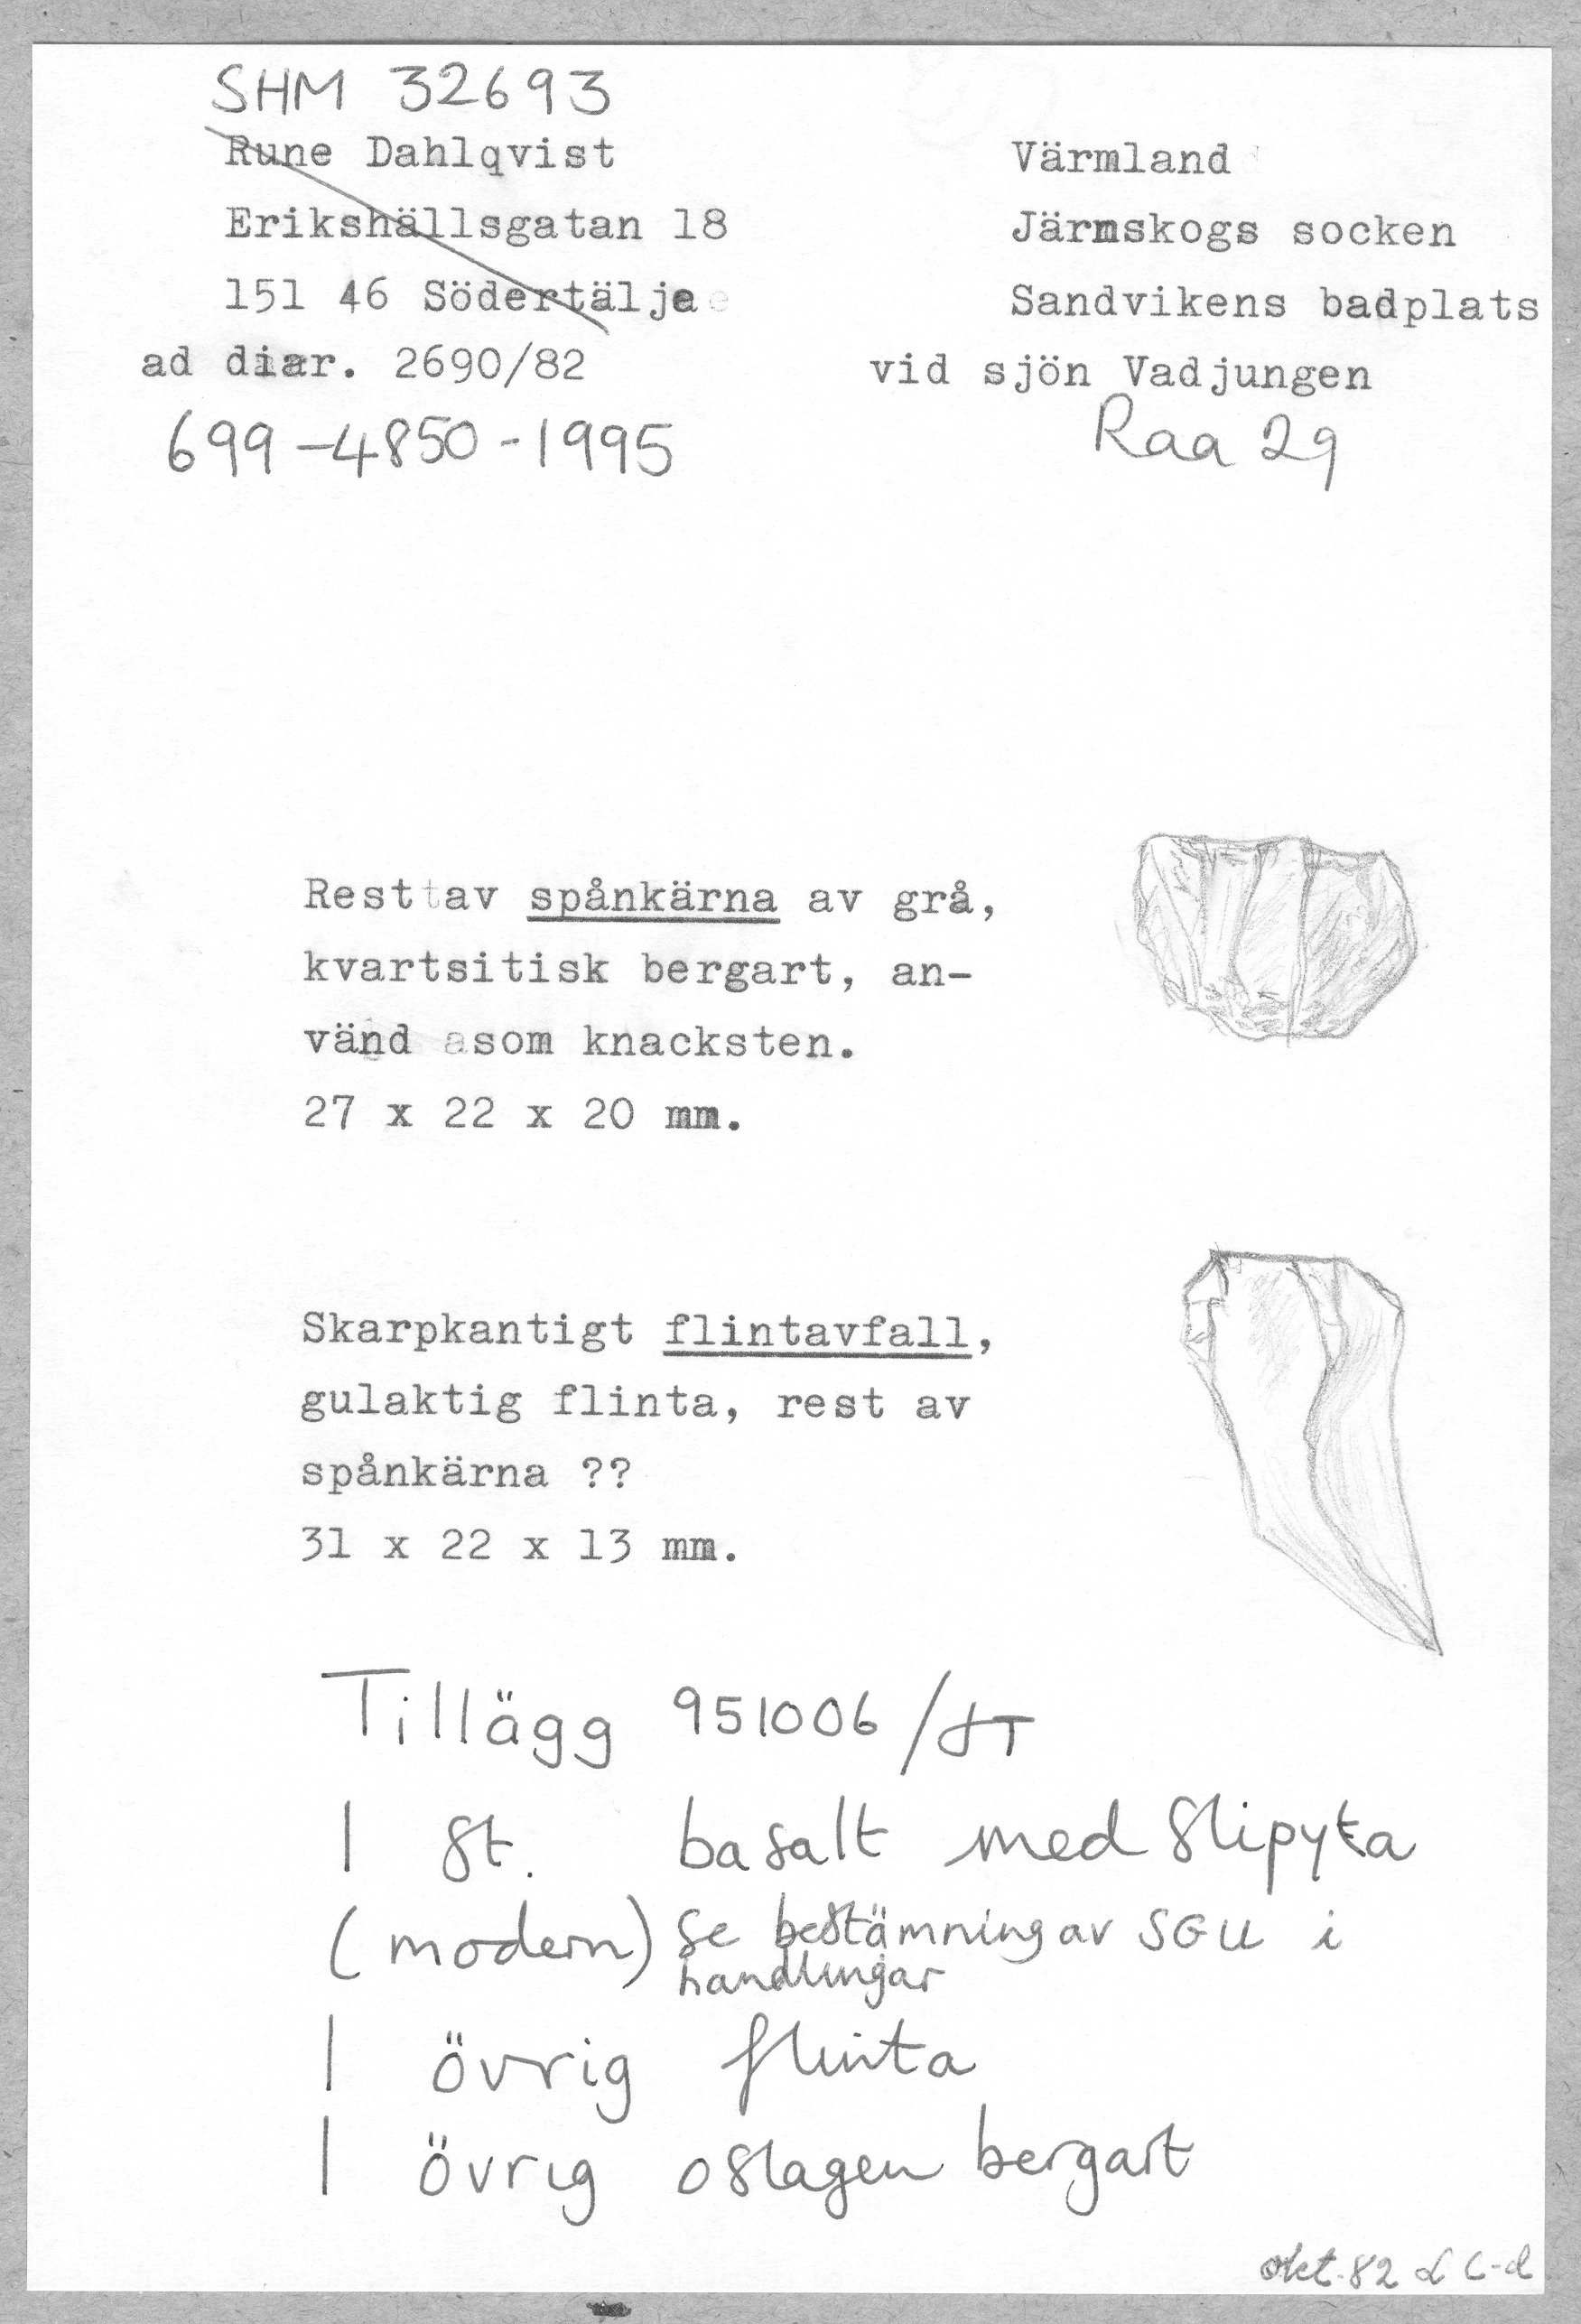 SHM 32693
Rune Dahlqvist
Erikshällsgatan 18
151 46 Södertälje
ad diar. 2690/82
699-4850-1995
Värmland
Järmskogs socken
Sandvikens badplats
vid sjön Vadjungen
Raa 29
Rest av spånkärna av grå,
kvartsitisk bergart, an-
vänd som knacksten.
27 x 22 x 20 mm.
Skarpkantigt flintavfall,
gulaktig flinta, rest av
spånkärna ??
31 x 22 x 13 mm.
Tillägg 951006/JT
1 st. basalt med slipyta
(modern) Se bestämning av SGU i
handlingar
1 övrig flinta
1 övrig oslagen bergart
okt. 82